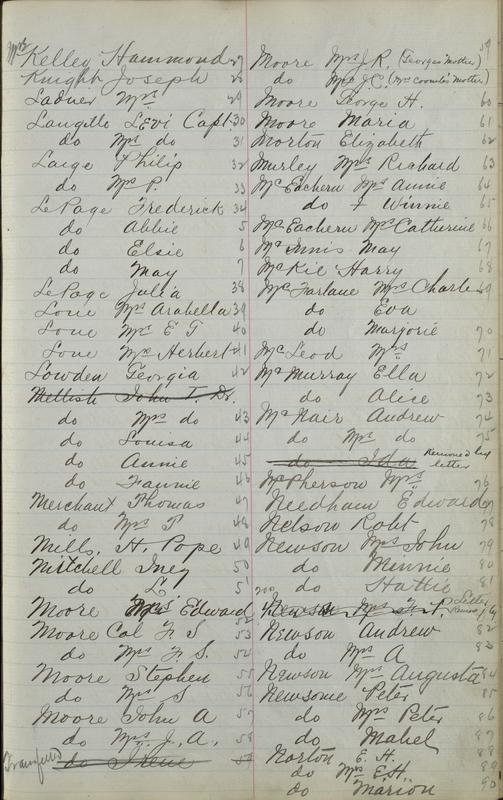 Mrs Kelley Hammond 27
Knight Joseph 28
Ladner Mrs 29
Langille Levi Capt 30
do Mrs do 31
Large Philip 32
do Mrs P. 33
LePage Frederick 34
do Abbie 5
do Elsie 6
do May 7
LePage Julia 38
Love Mrs Arabella 39
Love Mrs E T 40
Love Mrs Herbert 41
Lowden Georgia 42
Mellish John T. Dr.
do Mrs do 43
do Louisa 44
do Annie 45
do Fannie 46
Merchant Thomas 47
do Mrs T 48
Mills, H. Pope 49
Mitchell Iney 50
do L 51
Moore Mrs Edward 52
Moore Col F S 53
do Mrs F. S. 54
Moore Stephen 55
do Mrs S 56
Moore John A 57
do Mrs. J. A. 58
do Irene 59
59
Moore Mrs J. R. (Georges Mother)
do Mrs J. C. (Mrs Coombs' Mother)
Moore George H. 60
Moore Maria 61
Morton Elizabeth 62
Murley Mrs Richard 63
McEachern Mrs Annie 64
do Winnie 65
McEachern Mrs Catherine 66
McInnis May 67
McKie Harry 68
McFarlane Mrs Charles 69
do Eva
do Marjorie 70
McLeod Mrs 71
McMurray Ella 72
do Alice 73
McNair Andrew 74
do Mrs do 75
do Ida Removed by letter
McPherson Mrs 76
Needham Edward 77
Nelson Robt 78
Newson Mrs John 79
do Minnie 80
do Hattie 81
Newson Mrs
Newson Andrew 82
do Mrs A 83
Newson Mrs Augusta 84
Newsome Peter 85
do Mrs Peter 86
do Mabel 87
Norton E. H. 88
do Mrs E. H. 89
do Marion 90